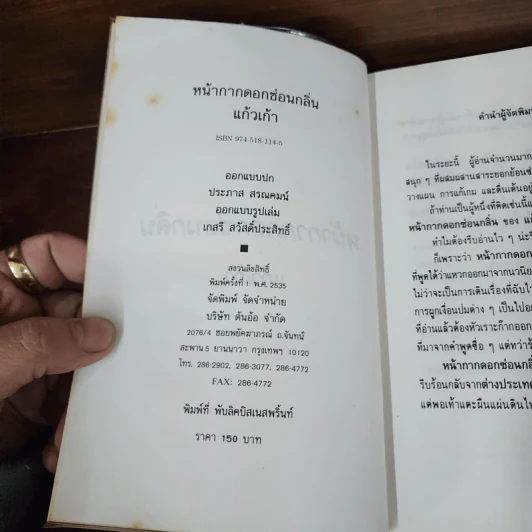 หน้ากากดอกซ่อนกลิ่น
แก้วเก้า
ISBN 974-518-114-5
ออกแบบปก
ประภาส สรณคมน์
ออกแบบรูปเล่ม
เกสรี สวัสดิ์ประสิทธิ์
สงวนลิขสิทธิ์
พิมพ์ครั้งที่ 1 พ.ศ. 2535
จัดพิมพ์ จัดจำหน่าย
บริษัท ต้นอ้อ จำกัด
2076/4 ซอยพยัคฆาภรณ์ ถ.จันทน์
สะพาน 5 ยานนาวา กรุงเทพฯ 10120
โทร. 286-2902, 286-3077, 286-4772
FAX: 286-4772
พิมพ์ที่ พับลิคบิสเนสพริ้นท์
ราคา 150 บาท
คำนำผู้จัดพิม
ในระยะนี้ ผู้อ่านจำนวนมาก
สนุก ๆ ที่ผสมผสานสาระยอกย้อนซ่
วางแผน การแก้เกม และตื่นเต้นอยู่
ถ้าท่านเป็นผู้หนึ่งที่คิดเช่นนี้แ
หน้ากากดอกซ่อนกลิ่น ของ แก้
ทำไมต้องรีบอ่านไว ๆ น่ะรึ
ก็เพราะว่า หน้ากากดอก
ที่พูดได้ว่าแหวกออกมาจากนวนิย
ไม่ว่าจะเป็นการเดินเรื่องที่ฉับไว
การผูกเงื่อนปมต่าง ๆ เป็นไปอย
ที่อ่านแล้วต้องหัวเราะก๊ากออก
ที่มาจากคำพูดซื่อ ๆ แต่ทว่าร้
หน้ากากดอกซ่อนกลิ
รีบร้อนกลับจากต่างประเทศ
แต่พอเท้าแตะผืนแผ่นดินไ